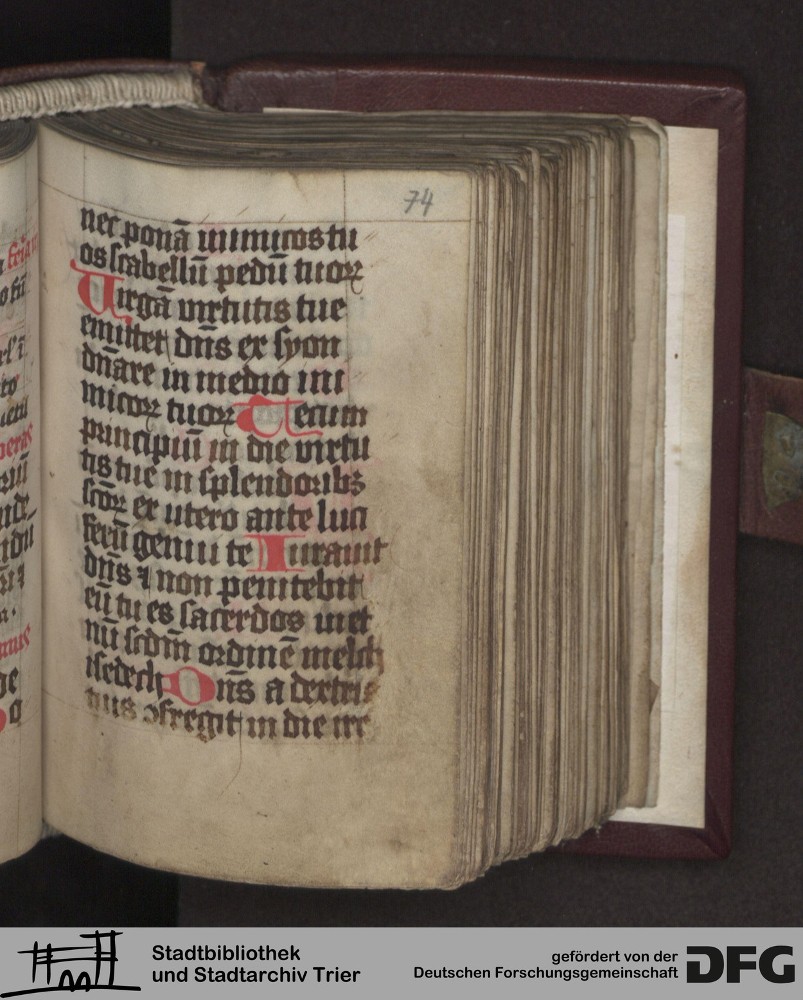 74
nec ponā inimicos tu
os scabellū pedū tuoꝝ
Uirgā virtutis tue
emittet dn̄s ex syon
dn̄are in medio ini
micoꝝ tuoꝝ Tecum
principiū in die virtu
tis tue in splendoribꝫ
sc̄oꝝ ex utero ante luci
ferū genui te Iurauit
dn̄s ⁊ non penitebit
eū tu es sacerdos in et
nū scdm̄ ordinē melch
isedech Dn̄s a dextris
tuis ꝯfregit in die ire
Stadtbibliothek
und Stadtarchiv Trier
gefördert von der
Deutschen Forschungsgemeinschaft
DFG